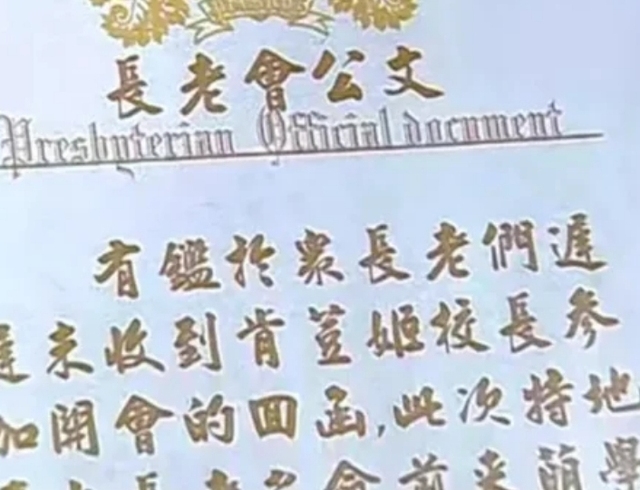 長老會公文
Presbyterian Official document
有鑑於眾長老們遲
遲未收到肯荳姬校長參
加開會的回函,此次特地
長老 會前來萌學